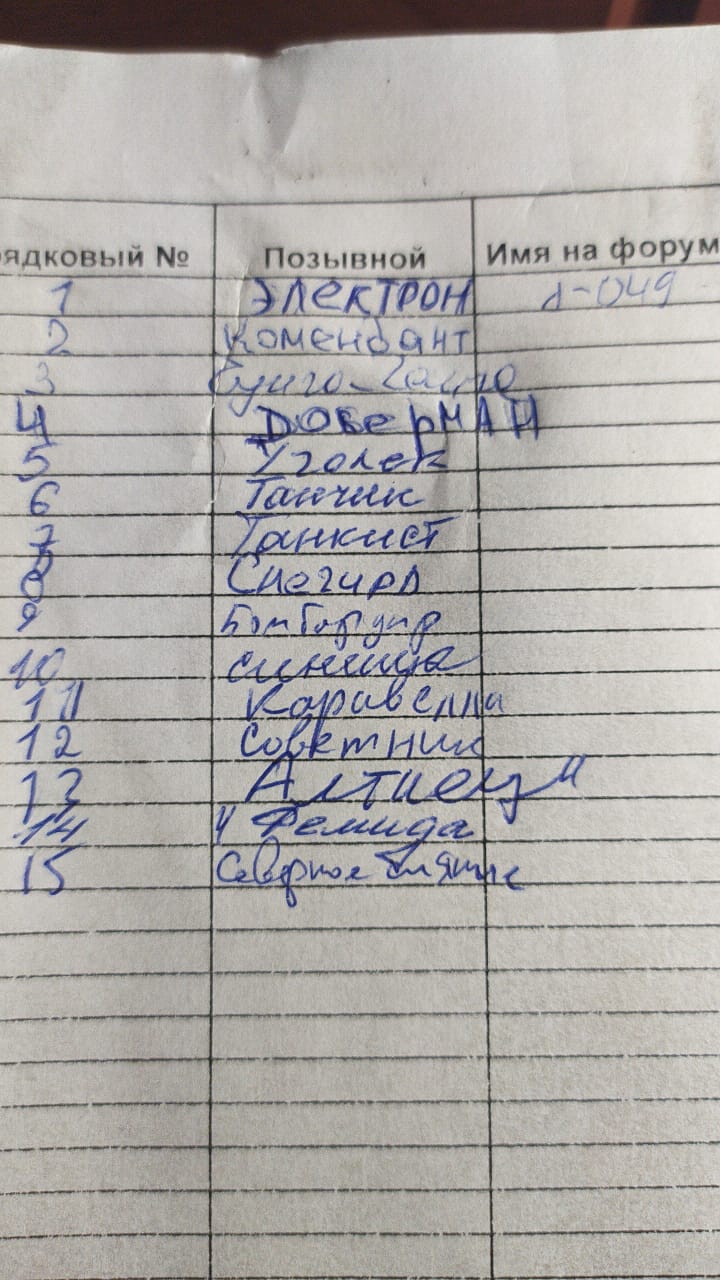 рядковый № Позывной Имя на форум
1 ЭЛЕКТРОН Л-049
2 Комендант
3
4 ДОБЕРМАН
5 Уголек
6 Танчик
7 Танкист
8 Снегирь
9 Бомбардир
10 синица
11 Каравелла
12 Советник
13 Алтиец"
14 " Фемида
15 Северное Сияние